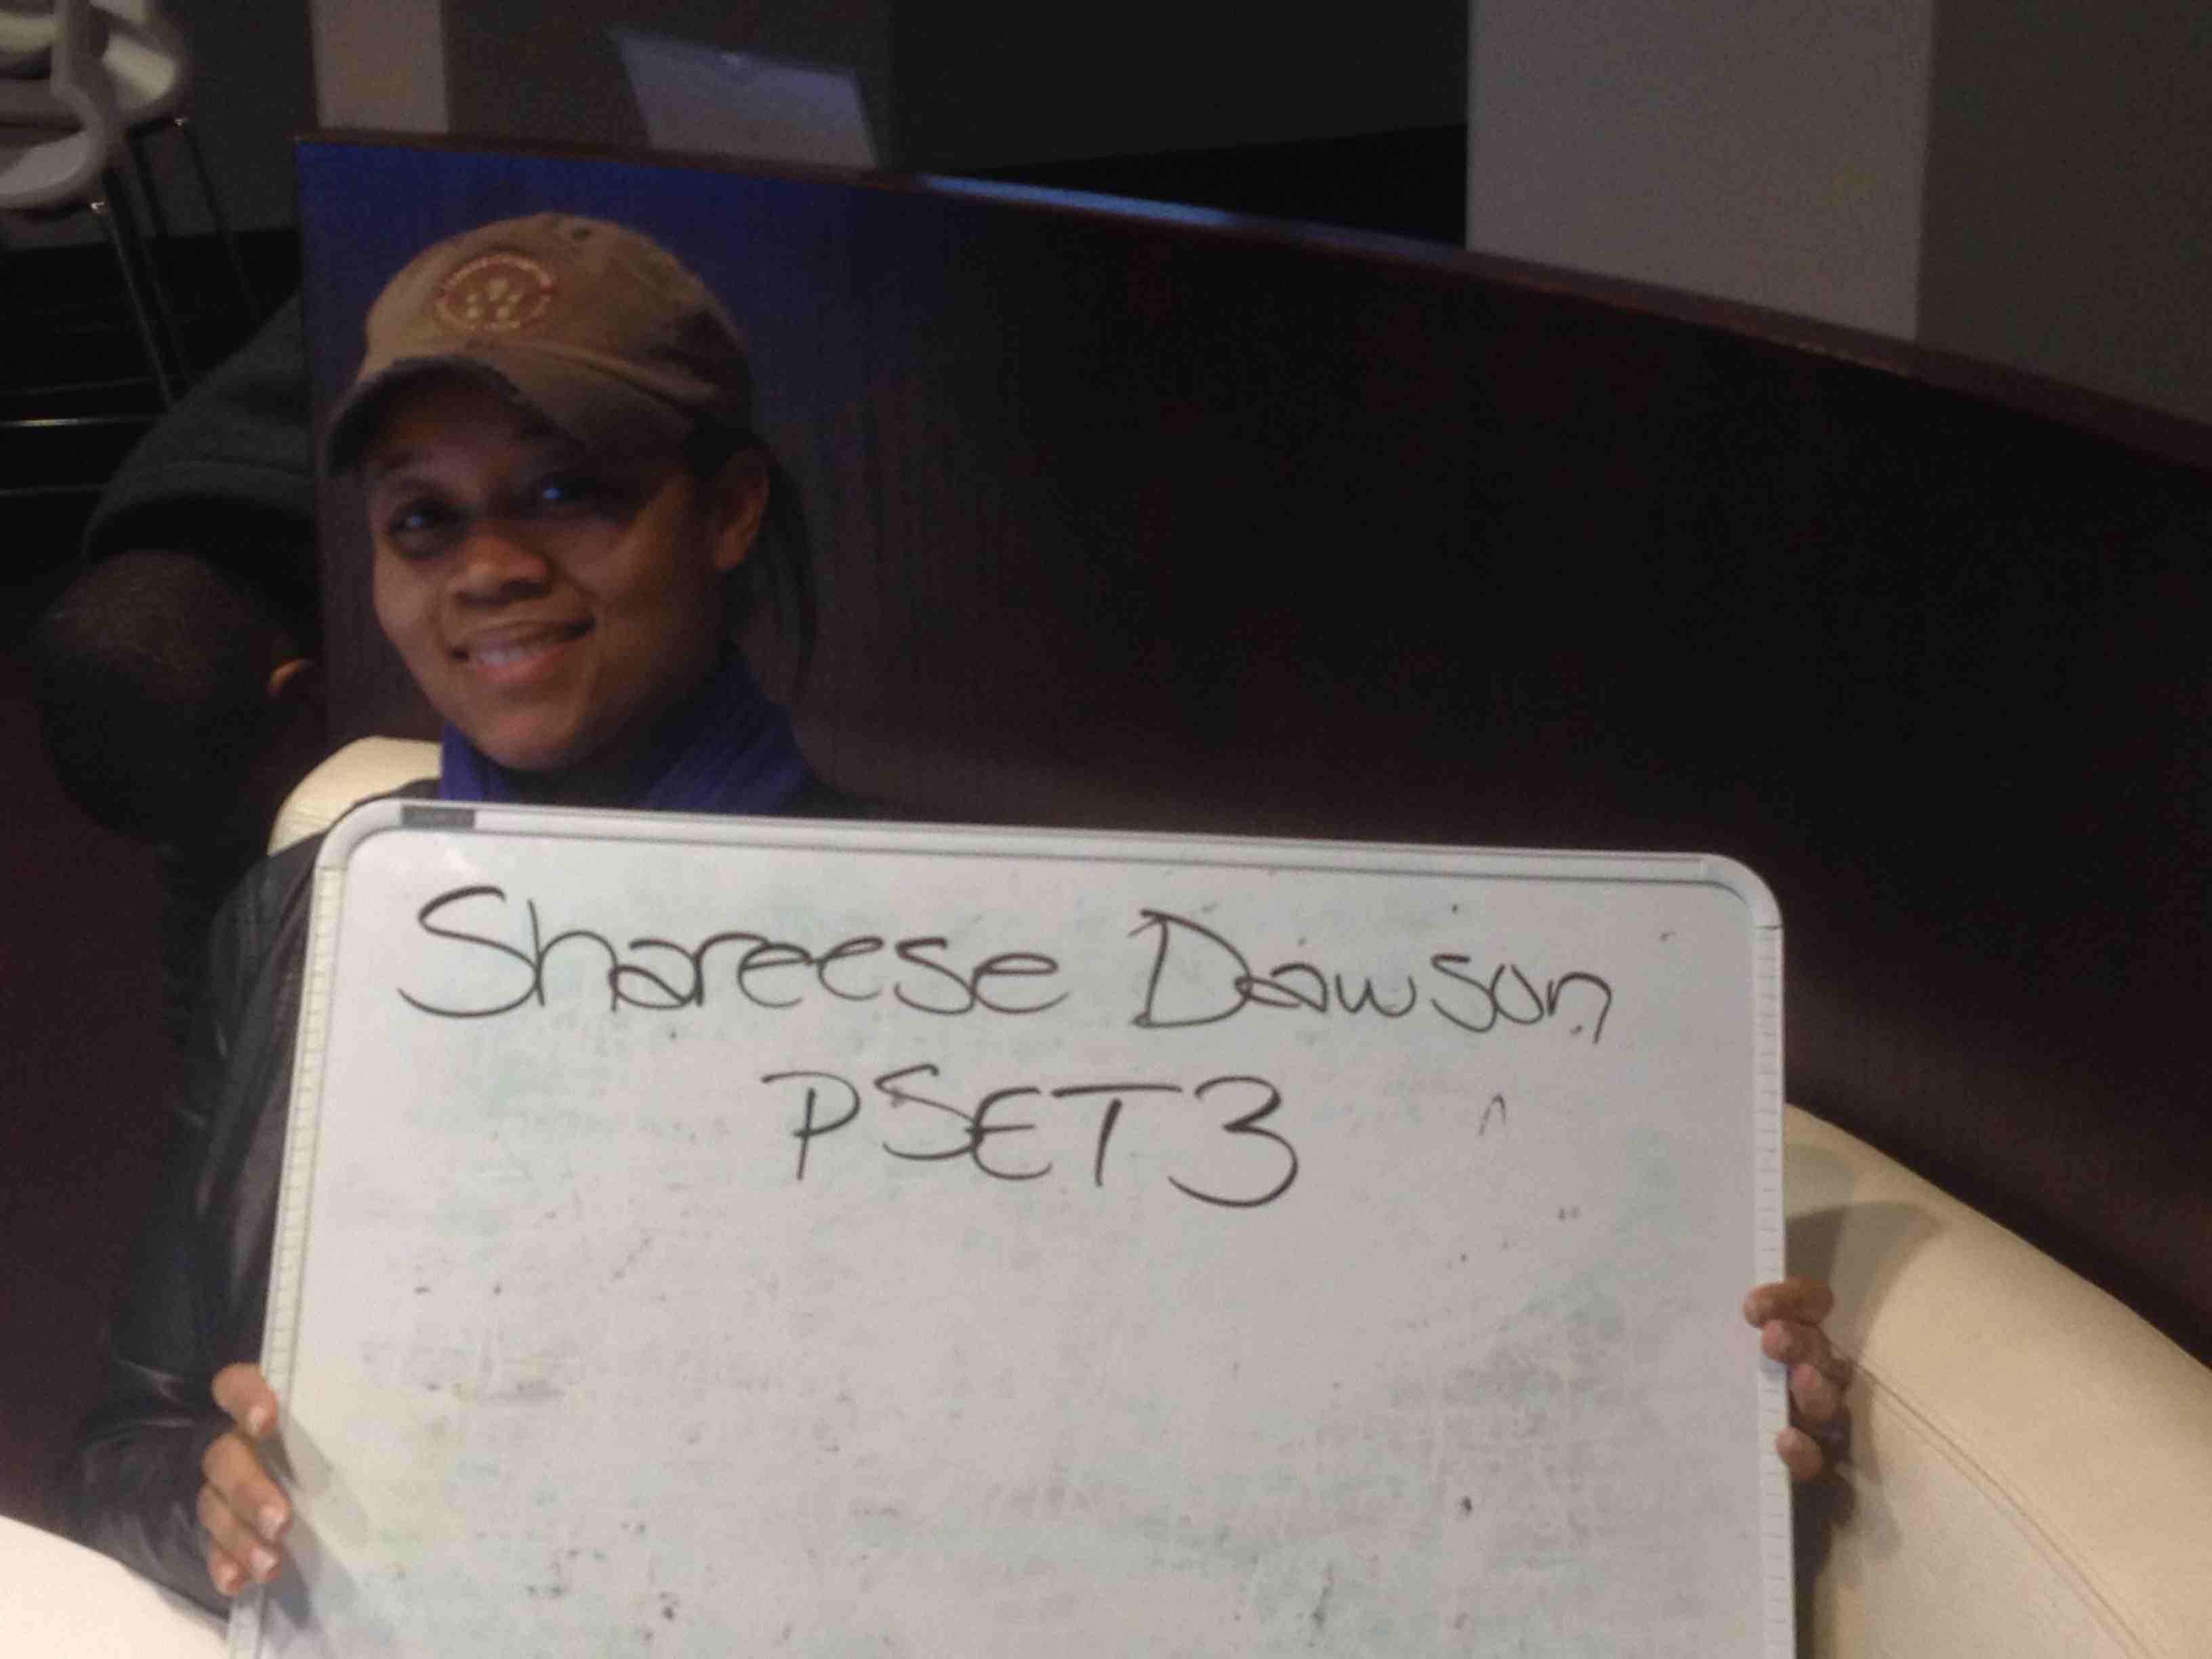 Shareese Dawson
PSET3